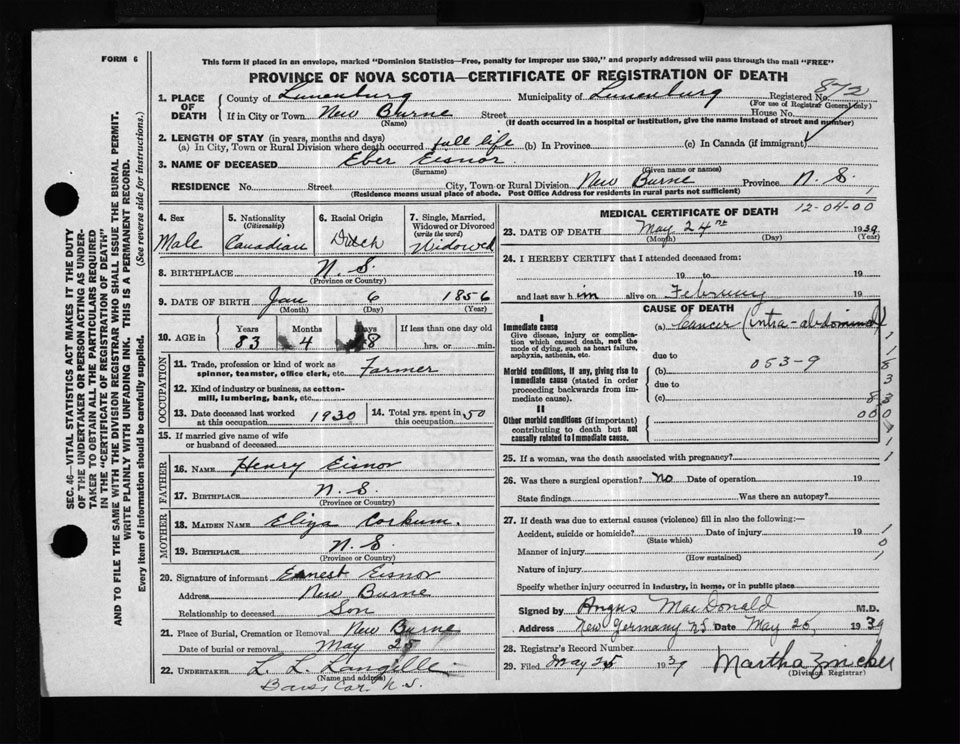 FORM 6
This form if placed in an envelope, marked "Dominion Statistics—Free, penalty for improper use $300," and properly addressed will pass through the mail "FREE"
PROVINCE OF NOVA SCOTIA—CERTIFICATE OF REGISTRATION OF DEATH
872
1. PLACE OF DEATH County of Lunenburg Municipality of Lunenburg Registered No.
(For use of Registrar General only)
If in City or Town New Burne Street House No.
(Name) (If death occurred in a hospital or institution, give the name instead of street and number)
2. LENGTH OF STAY (in years, months and days)
(a) In City, Town or Rural Division where death occurred full life (b) In Province (c) In Canada (if immigrant)
3. NAME OF DECEASED Eber Eisnor
(Surname) (Given name or names)
RESIDENCE No. Street City, Town or Rural Division New Burne Province N. S.
(Residence means usual place of abode. Post Office Address for residents in rural parts not sufficient)
4. Sex Male
5. Nationality (Citizenship) Canadian
6. Racial Origin Dutch
7. Single, Married, Widowed or Divorced (write the word) Widowed
8. BIRTHPLACE N. S.
(Province or Country)
9. DATE OF BIRTH Jan 6 1856
(Month) (Day) (Year)
10. AGE in Years Months Days If less than one day old
83 4 18 hrs. or min.
OCCUPATION
11. Trade, profession or kind of work as spinner, teamster, office clerk, etc. Farmer
12. Kind of industry or business, as cotton-mill, lumbering, bank, etc.
13. Date deceased last worked at this occupation 1930
14. Total yrs. spent in this occupation 50
15. If married give name of wife or husband of deceased
FATHER
16. NAME Henry Eisnor
17. BIRTHPLACE N. S.
(Province or Country)
MOTHER
18. MAIDEN NAME Eliza Corkum.
19. BIRTHPLACE N. S.
(Province or Country)
20. Signature of informant Ernest Eisnor
Address New Burne
Relationship to deceased Son
21. Place of Burial, Cremation or Removal New Burne
Date of burial or removal May 25
22. UNDERTAKER L. L. Langille
(Name and address)
N.S.
MEDICAL CERTIFICATE OF DEATH 12-04-00
23. DATE OF DEATH May 24th 1939
(Month) (Day) (Year)
24. I HEREBY CERTIFY that I attended deceased from:
19 to 19
and last saw him alive on February 19
CAUSE OF DEATH
I
Immediate cause
Give disease, injury or complication which caused death, not the mode of dying, such as heart failure, asphyxia, asthenia, etc.
(a) Cancer (intra-abdominal)
due to
Morbid conditions, if any, giving rise to immediate cause (stated in order proceeding backwards from immediate cause).
(b) 053-9
due to
(c)
II
Other morbid conditions (if important) contributing to death but not causally related to immediate cause.
25. If a woman, was the death associated with pregnancy?
26. Was there a surgical operation? No Date of operation 19
State findings Was there an autopsy?
27. If death was due to external causes (violence) fill in also the following:—
Accident, suicide or homicide? Date of injury 19
(State which)
Manner of injury
(How sustained)
Nature of injury
Specify whether injury occurred in industry, in home, or in public place
Signed by Angus MacDonald M.D.
Address New Germany NS Date May 25, 1939
28. Registrar's Record Number
29. Filed May 25 1939 Martha Zwicker
(Division Registrar)
SEC. 46—VITAL STATISTICS ACT MAKES IT THE DUTY
OF THE UNDERTAKER OR PERSON ACTING AS UNDER-
TAKER TO OBTAIN ALL THE PARTICULARS REQUIRED
IN THE "CERTIFICATE OF REGISTRATION OF DEATH"
AND TO FILE THE SAME WITH THE DIVISION REGISTRAR WHO SHALL ISSUE THE BURIAL PERMIT.
WRITE PLAINLY WITH UNFADING INK. THIS IS A PERMANENT RECORD.
Every item of information should be carefully supplied. (See reverse side for instructions.)